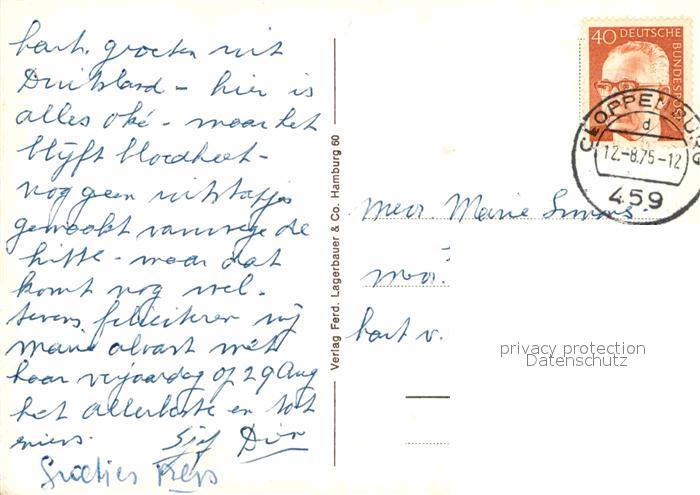 hart. groeten uit
Duitsland – hier is
alles oké – maar het
blijft bloedheet –
nog geen uitstapjes
gemaakt vanwege de
hitte – maar dat
komt nog wel.
Tevens feliciteren wij
Marie alvast met
haar verjaardag op 29 Aug
het allerbeste en tot
ziens.
Groetjes
Verlag Ferd. Lagerbauer & Co. Hamburg 60
40 DEUTSCHE
BUNDESPOST
CLOPPENBURG
d
12.-8.75-12
459
Mevr. Marie Simons
hart v.
privacy protection
Datenschutz